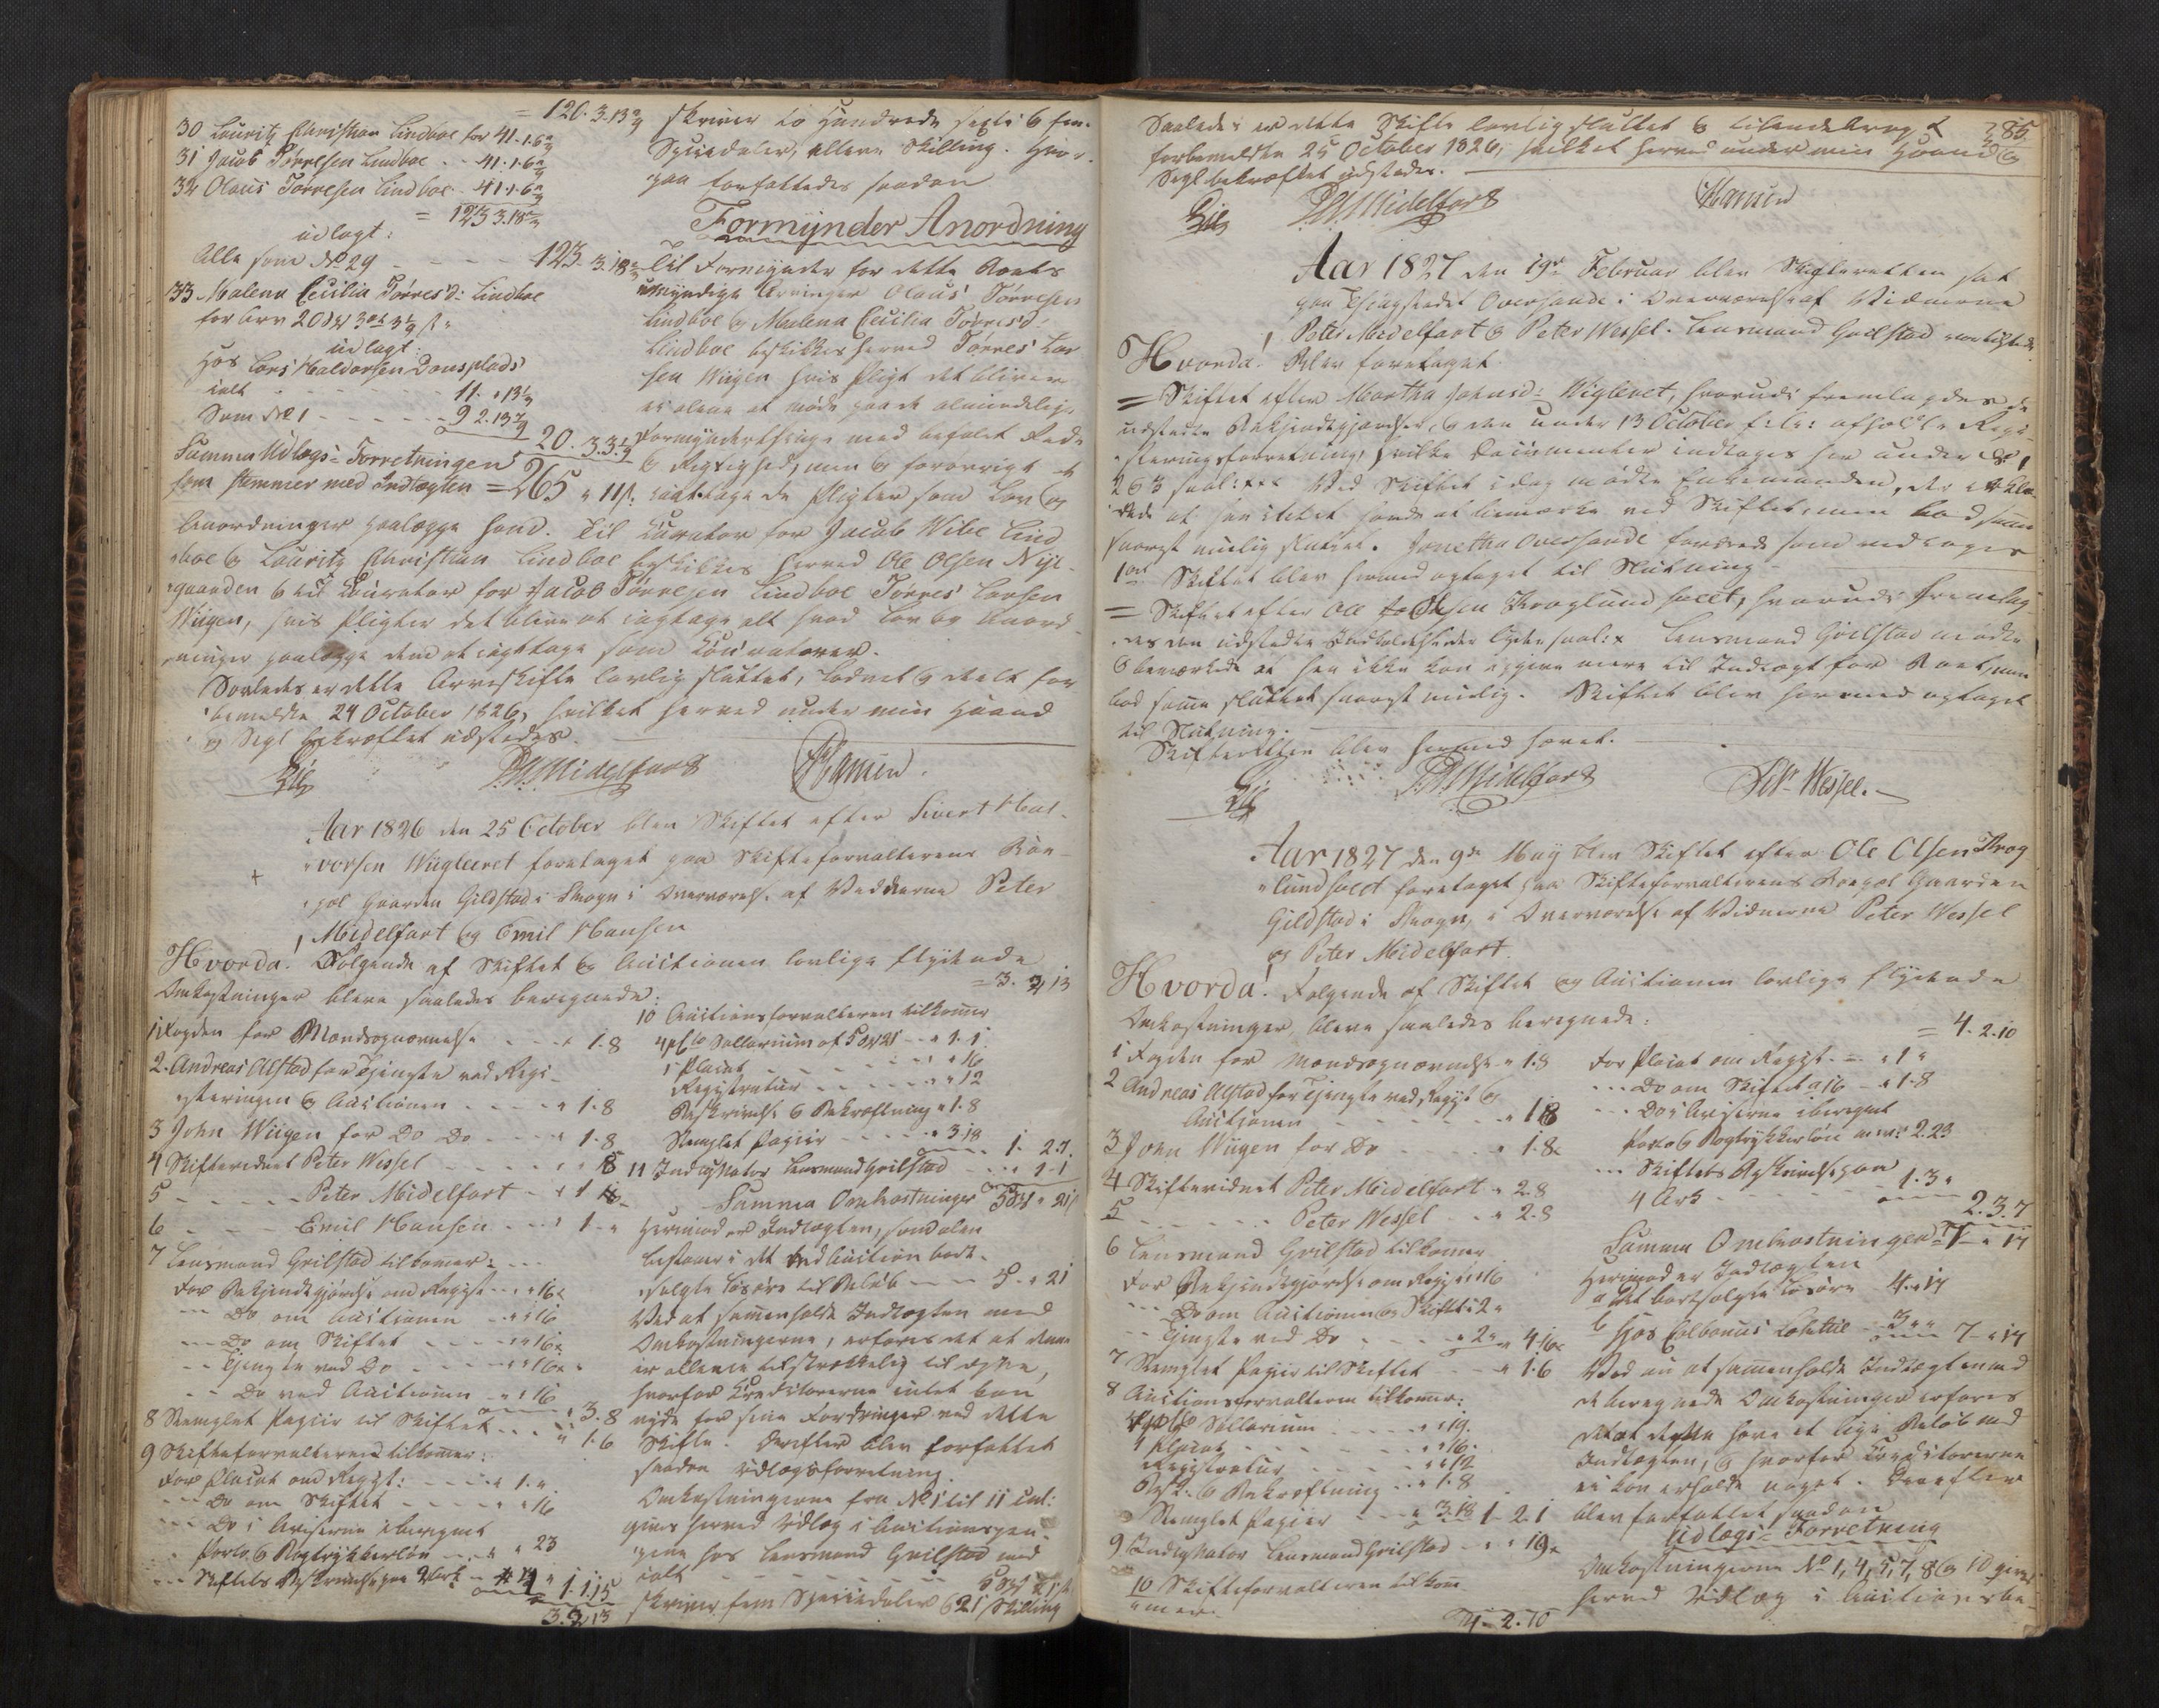 = 120. 3. 13
30 Lauritz Christian Lindboe for 41. 1. 6
31 Jacob Tørresen Lindboe - - 41. 1. 6
32 Olaus Tørresen Lindboe - - 41. 1. 6
= 123 3. 18
udlagt:
Alle som No 29 - - - - 123. 3. 18
33 Malena Cecilia Tørresd: Lindboe
for Arv 20
udlagt:
Hos Lars Haldorsen Dansplads
ialt - - - 11. " 13
Som No 1 - - - - 9 2. 13
20. 3. 3
Summa Udlægs-Forretningen
som stemmer med Indtægten = 265 " 11
skriver to Hundrede sexti & fem
Speciedaler, elleve Skilling. Hvor-
paa forfattedes saadan
Formynder Anordning
Til Formynder for dette Boets
umyndige Arvinger Olaus Tørresen
Lindboe & Malena Cecilia Tørresd:
Lindboe beskikkes herved Tørres Lar
sen Wiigen hvis Pligt det bliver
ei alene at møde paa de almindelige
Formynderthinge med befalet Rede
& Rigtighed, men & forøvrigt at
iagttage de Pligter som Lov og
Anordninger paalægge ham. Til Curator for Jacob Wibe Lind
boe & Lauritz Christian Lindboe beskikkes herved Ole Olsen Nye-
gaarden & til Curator for Jacob Tørresen Lindboe Tørres Larsen
Wiigen, hvis Pligter det bliver at iagttage alt hvad Lov og Anord-
ninger paalægge dem at iagttage som Curatorer.
Saaledes er dette Arveskifte lovlig sluttet, lodnet & deelt for
bemeldte 24 October 1826, hvilket herved under min Haand
og Segl bekræftet udstedes.
Midelfart Hansen.
Aar 1826 den 25 October blev Skiftet efter Sivert Hal-
vorsen Wiigleevet foretaget paa Skifteforvalterens Boe-
pæl Gaarden Gildstad i Skogn i Overværelse af Vidnerne Peter
Midelfart og Emil Hansen
Hvorda! Følgende af Skiftet og Auctionen lovlige flydende
Omkostninger bleve saaledes beregnede:
1 Fogden for Mandsopnævnelse - - - " 1. 8
2. Andreas Alstad for Tjeneste ved Regi-
steringen & Auctionen - - - - " 1. 8
3 John Wiigen for Do Do - - - " 1. 8
4 Skiftevidnet Peter Wessel - - - -
5 - - - - - Peter Midelfart - - 1
6 - - - Emil Hansen - - - 1 - "
7 Lensmand Grilstad tilkommer: - - -
For Bekjendtgjørelse om Regist - - " 16
- - Do om Auctionen - - " 16
- - Do om Skiftet - - - - " 16
- - Tjeneste ved Do - - - - " 16
- - Do ved Auctionen - - " 16
" 3. 8
8 Stemplet Papiir til Skiftet - - - " 1. 6
9 Skifteforvalteren tilkommer:
For Placat om Regist: - - - " 1. "
- - Do om Skiftet - - - - " 16
- - Do i Aviserne iberegnet
Porto & Bogtrykkerløn - - " " 23
- - Skiftets Beskrivelse paa 2 Ark - 1. 1. 15
3. 2 13
= 3. 2 13
10 Auctionsforvalteren tilkommer
4 pCto Sallarium af 5 21 - - " 1. 1.
1 Placat - - - " 16
Registratur - - - - - " 12
Beskrivelse & Bekræftning " 1. 8
Stemplet Papiir - - - - " 3. 18
1. 2. 7
11 Indkrævator Lensmand Grilstad - - - " 1 - 1
Summa Omkostninger 5 " 21
Herimod er Indtægten, som alene
bestaaer i det ved Auction bort-
solgte Løsøre til Beløb - - - 5. " 21
Ved at sammenholde Indtægten med
Omkostningerne, erfares det at denne
er allene tilstrækkelig til disse,
hvorfor Creditorerne intet kan
nyde for sine Fordringer ved dette
Skifte. Derefter blev forfattet
saadan Udlægsforretning.
Omkostningerne fra No 1 til 11 incl:
gives herved Udlæg i Auctionspen-
gene hos Lensmand Grilstad med
ialt - - - - - 5 21
skriver fem Speciedaler & 21 Skilling
Saaledes er dette Skifte lovlig sluttet & tilendebragt 285
forbemeldte 25 October 1826, hvilket herved under min Haand &
Segl bekræftet udstedes.
Midelfart Hansen
Aar 1827 den 19de Februar blev Skifteretten sat
paa Thingstedet Oversande i Overværelse af Vidnerne
Peter Midelfart & Peter Wessel. Lensmand Grilstad var tilstede.
Hvorda! Blev foretaget
= Skiftet efter Martha Johnsd: Wiglevet, hvorudi fremlagdes de
udstedte Bekjendtgjørelser, & den under 13 October f: A: afholdte Regi-
steringsforretning, hvilke Documenter indtages her under No 1
263 saal: Ved Skiftet idag mødte Enkemanden, der erklæ-
rede at han intet havde at bemærke ved Skiftet, men bad samme
snarest muelig sluttet. Jonetha Oversande
1 Skiftet blev hermed optaget til Slutning -
= Skiftet efter Ole Olsen Kroglundhalt, hvorudi fremlag-
des den udstedte Indkaldelse der lyder saal: Lensmand Grilstad mødte
& bemærkede at han ikke kan opgive mere til Indtægt for Boet, men
bad samme sluttet snarest muelig. Skiftet blev hermed optaget
til Slutning.
Skifteretten blev hermed hævet.
Midelfart Wessel.
Aar 1827 den 9de May blev Skiftet efter Ole Olsen Krog
lundhalt foretaget paa Skifteforvalterens Boepæl Gaarden
Gildstad i Skogn, i Overværelse af Vidnerne Peter Wessel
og Peter Midelfart.
Hvorda! Følgende af Skiftet og Auctionen lovlige flydende
Omkostninger bleve saaledes beregnede:
1 Fogden for Mandsopnævnelse - " 1. 8
2 Andreas Alstad for Tjeneste ved Regist &
Auctionen - - - - - " 18
3 John Wiigen for Do - - - " 1. 8
4 Skiftevidnet Peter Midelfart " 2. 8
5 - - - - Peter Wessel - - " 2. 8
6 Lensmand Grilstad tilkommer
For Bekjendtgjørelse om Regist " 16
- - Do om Auctionen og Skiftet 2 "
- - Tjeneste ved Do - - " 2 " " 4. 16
7 Stemplet Papir til Skiftet - " 1. 6
8 Auctionsforvalteren tilkommer:
Sallarium - - - " 19.
1 Placat - - - - " 16.
Registratur - - - - " 12
Besk. & Bekræftning - - " 1. 8
Stemplet Papiir - - - " 3. 18 1 - 2. 1
9 Indkrævator Lensmand Grilstad - " 19
10 Skifteforvalteren tilkom-
mer.
4. 2. 10
= 4. 2. 10
For Placat om Regist. - - " 1 "
- - Do om Skiftet a 16 - " 1. 8
- - Do i Aviserne iberegnet
Porto & Bogtrykkerløn 2. 23
- - Skiftets Beskrivelse paa
4 Ark - - - - 1. 3 "
2. 3. 7
Summa Omkostninger 7 " 17
Herimod er Indtægten
a Det bortsolgte Løsøre 4 " 17
b Hos 3 " " 7 " 17
Ved nu at sammenholde Indtægten med
de beregnede Omkostninger erfares
det at disse have et lige Beløb med
Indtægten, & hvorfor Creditorerne
ei kan erholde noget. Derefter
blev forfattet saadan
Udlægs-Forretning
Omkostningerne No 1, 4, 5, 7, 8 & 10 gives
herved Udlæg i Auctionsbe-